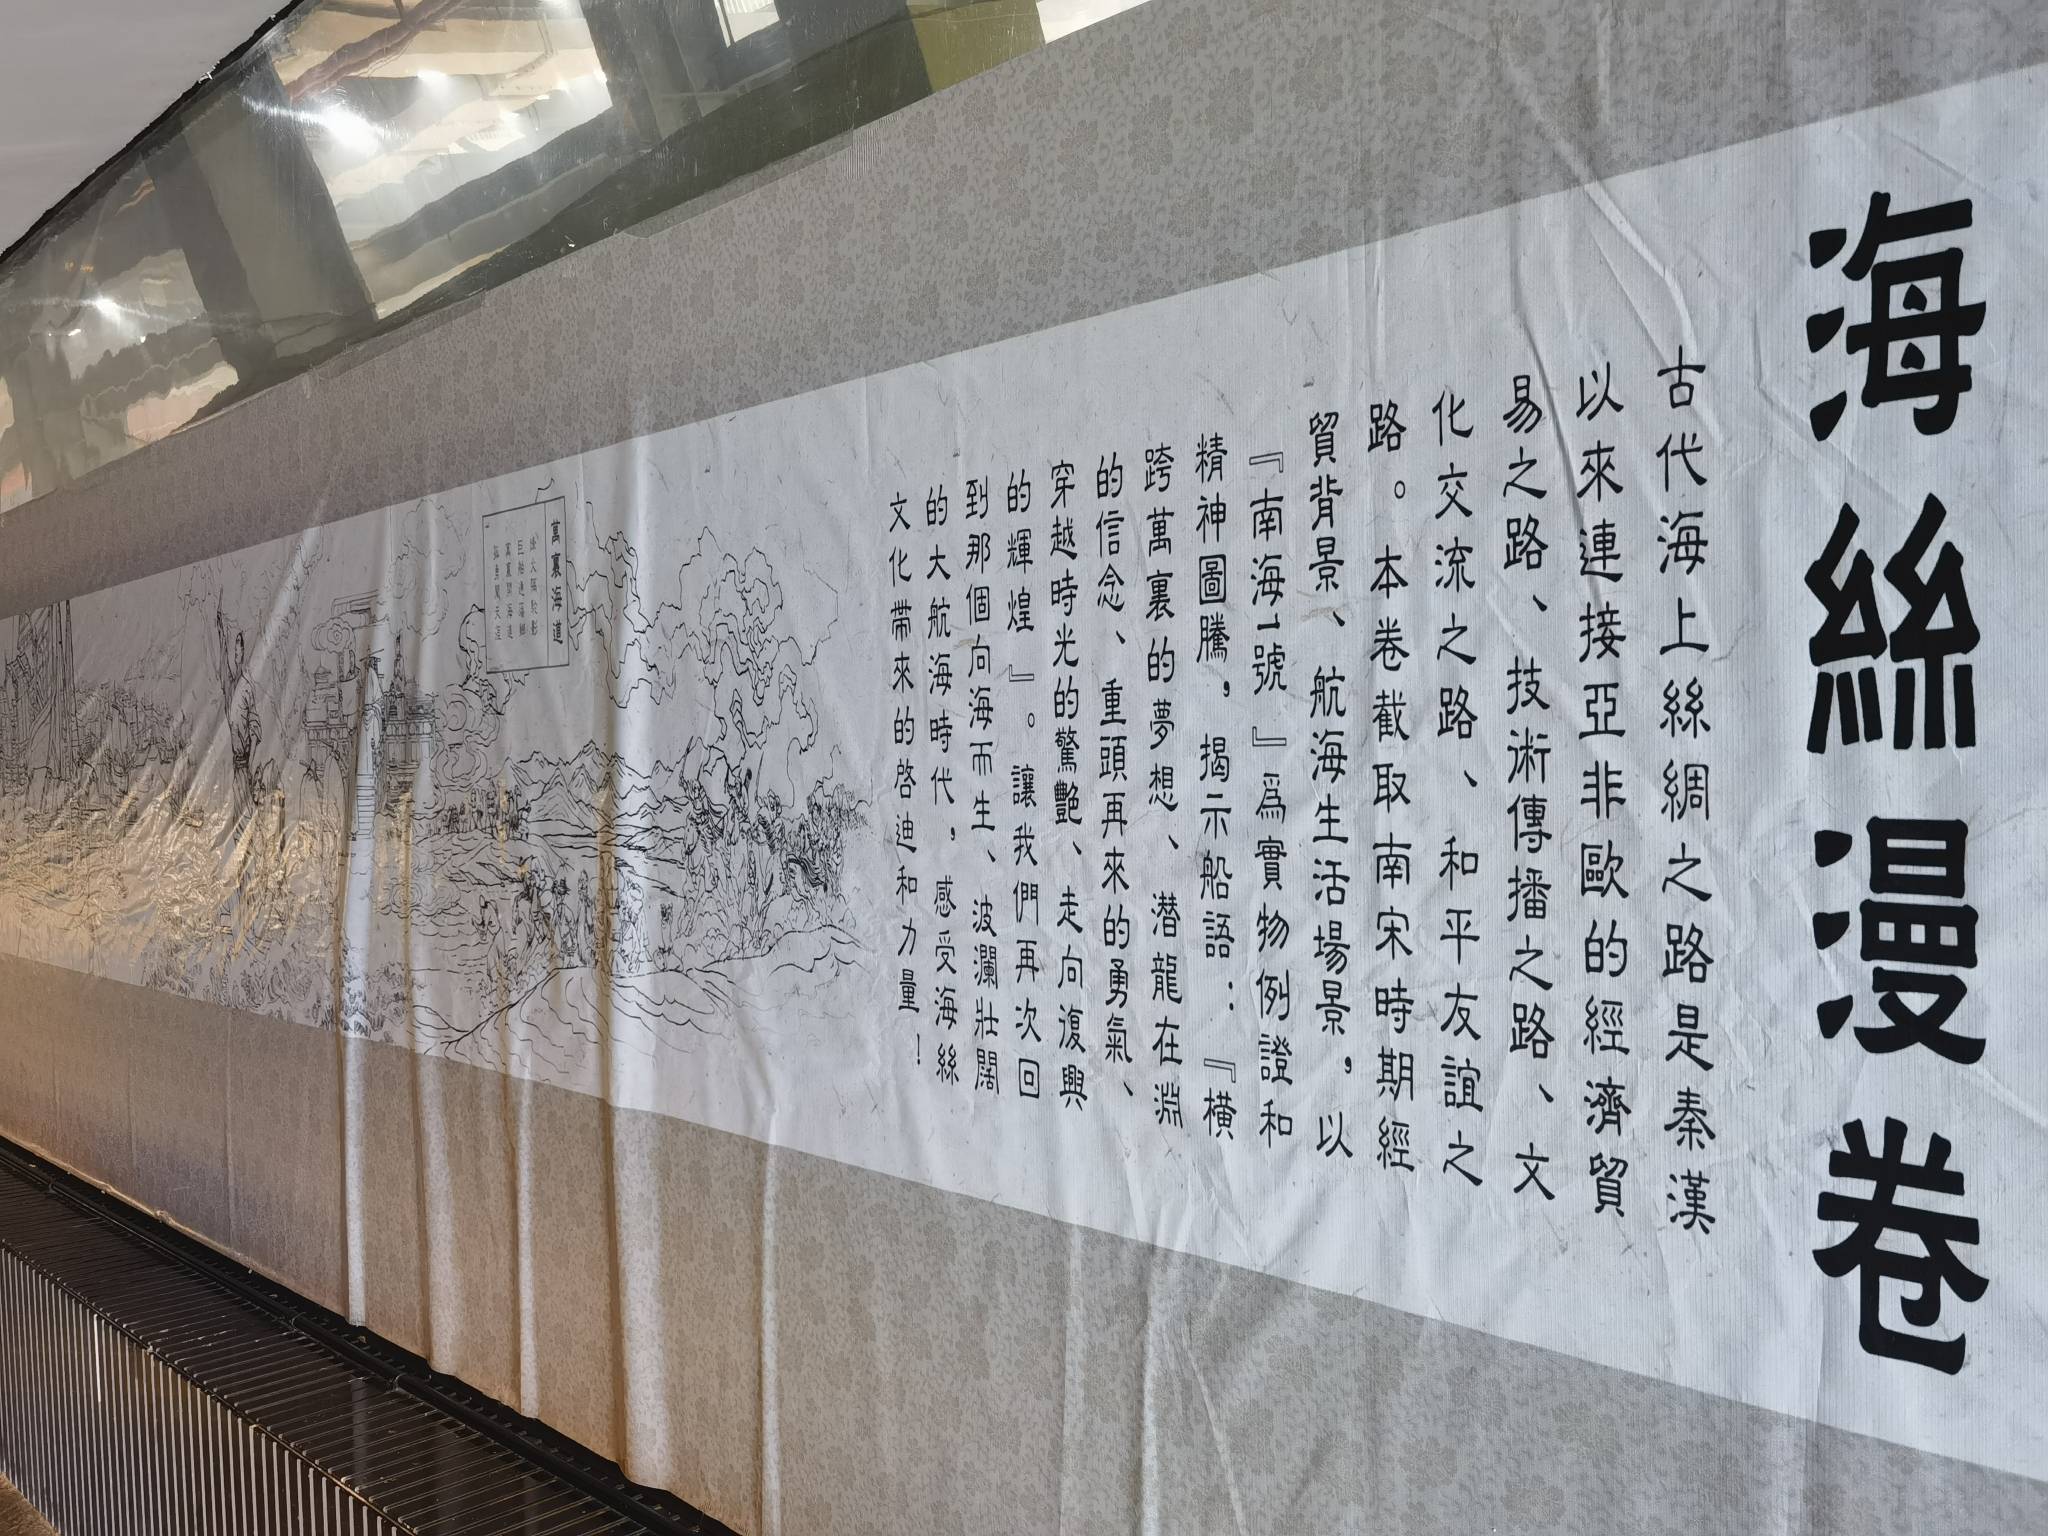 海絲漫卷
古代海上絲綢之路是秦漢
以來連接亞非歐的經濟貿
易之路、技術傳播之路、文
化交流之路、和平友誼之
路。本卷截取南宋時期經
貿背景、航海生活場景，以
『南海1號』爲實物例證和
精神圖騰，揭示船語：『橫
跨萬裏的夢想、潜龍在淵
的信念、重頭再來的勇氣、
穿越時光的驚艷、走向復興
的輝煌』。讓我們再次回
到那個向海而生、波瀾壯闊
的大航海時代，感受海絲
文化帶來的啓迪和力量！
萬裏海道